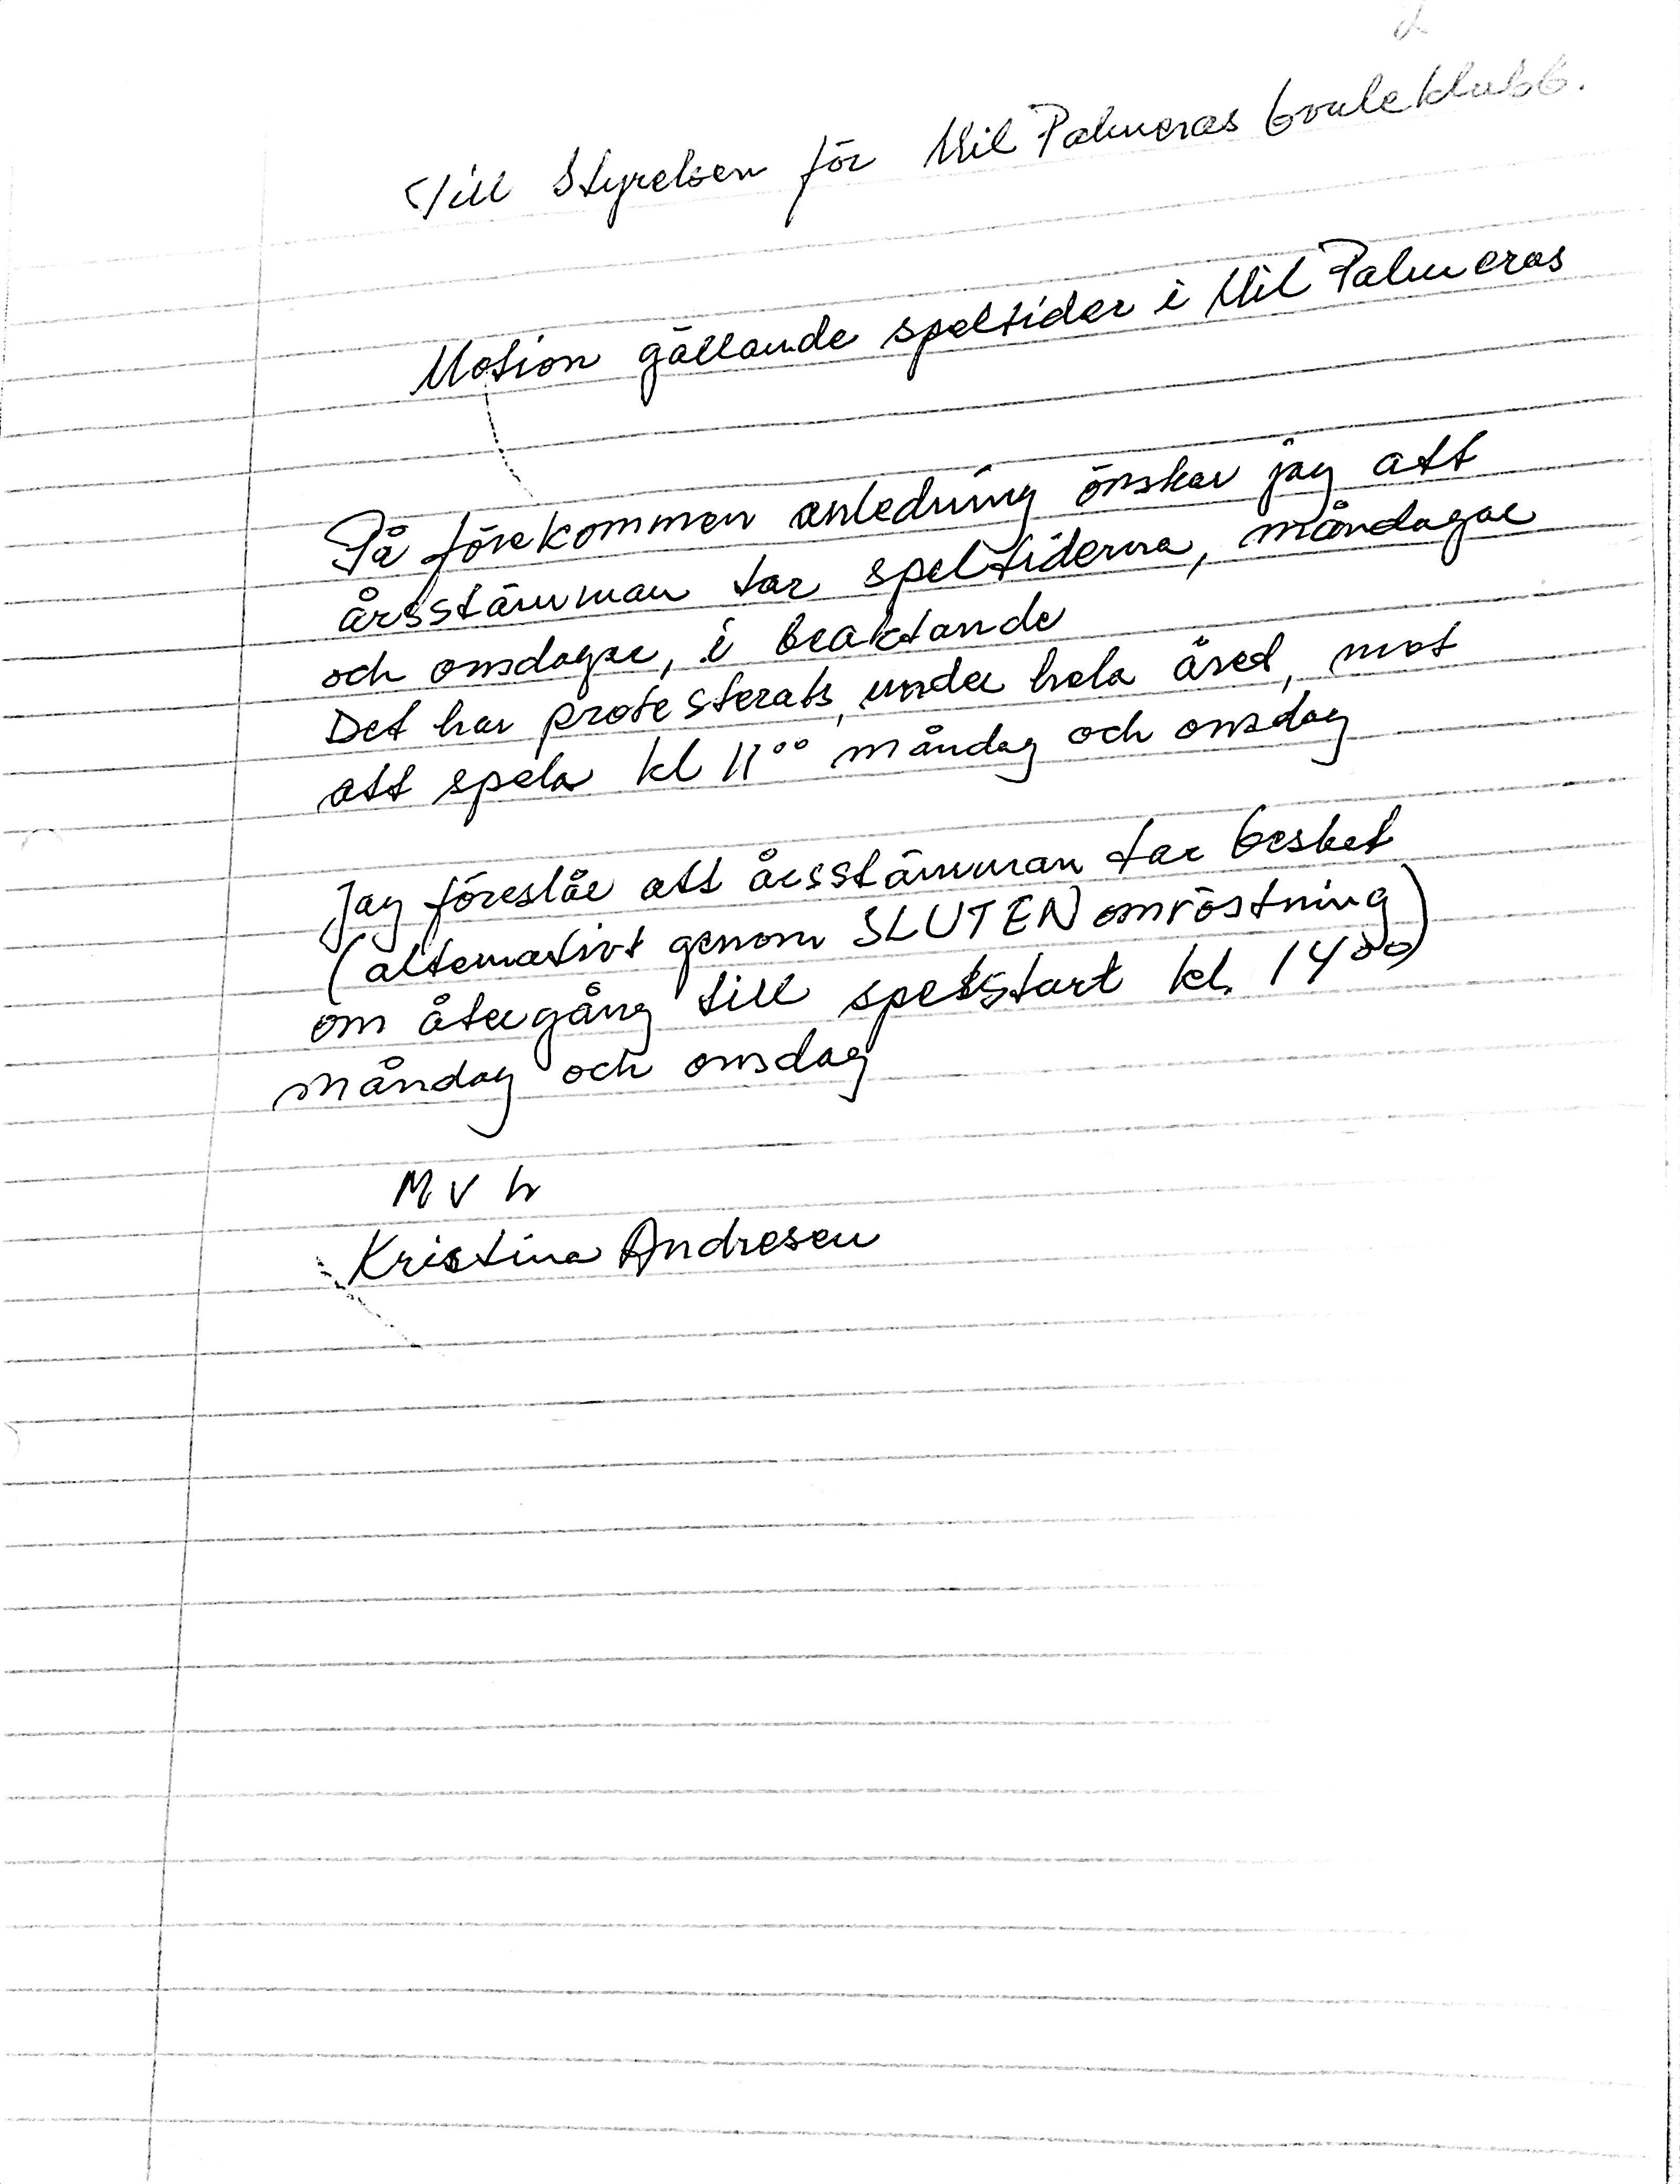 2
Till Styrelsen för Mil Palmeras bouleklubb.
Motion gällande speltider i Mil Palmeras
På förekommen anledning önskar jag att
årsstämman tar speltiderna, måndagar
och onsdagar, i beaktande
Det har protesterats, under hela året, mot
att spela kl 11⁰⁰ måndag och onsdag
Jag föreslår att årsstämman tar beslut
(alternativt genom SLUTEN omröstning)
om återgång till spelstart kl. 14⁰⁰
måndag och onsdag
MVh
Kristina Andresen